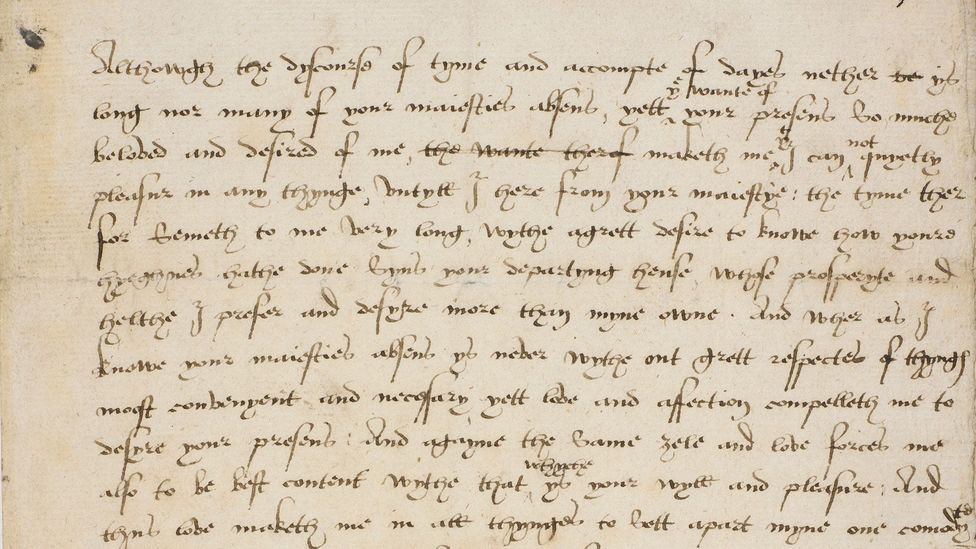 Althowgh the dyscourse of tyme and accompte of dayes nether be ys
long nor many of your maiesties absens, yett yͤ wante of your presens So muche
beloved and desired of me, the wante therof maketh me, yͭ I can not quyetly
pleasur in any thynge, Untyll I here from your maiestye: the tyme ther
for Semeth to me very long, wythe agrett desire to knowe how youre
hyeghnes hathe done Syns your departyng hense, whose prosperyte and
helthe I prefer and desyre more than myne owne. And wher as I
knowe your maiesties absens ys never wythe out grett respectes of thyngs
most convenyent and necessary, yett love and affection compelleth me to
desyre your presens: And agayne the Same zele and love forces me
also to be best content wythe that whyche ys your wyll and pleasure: And
thys love maketh me in all thynges to Sett apart myne one